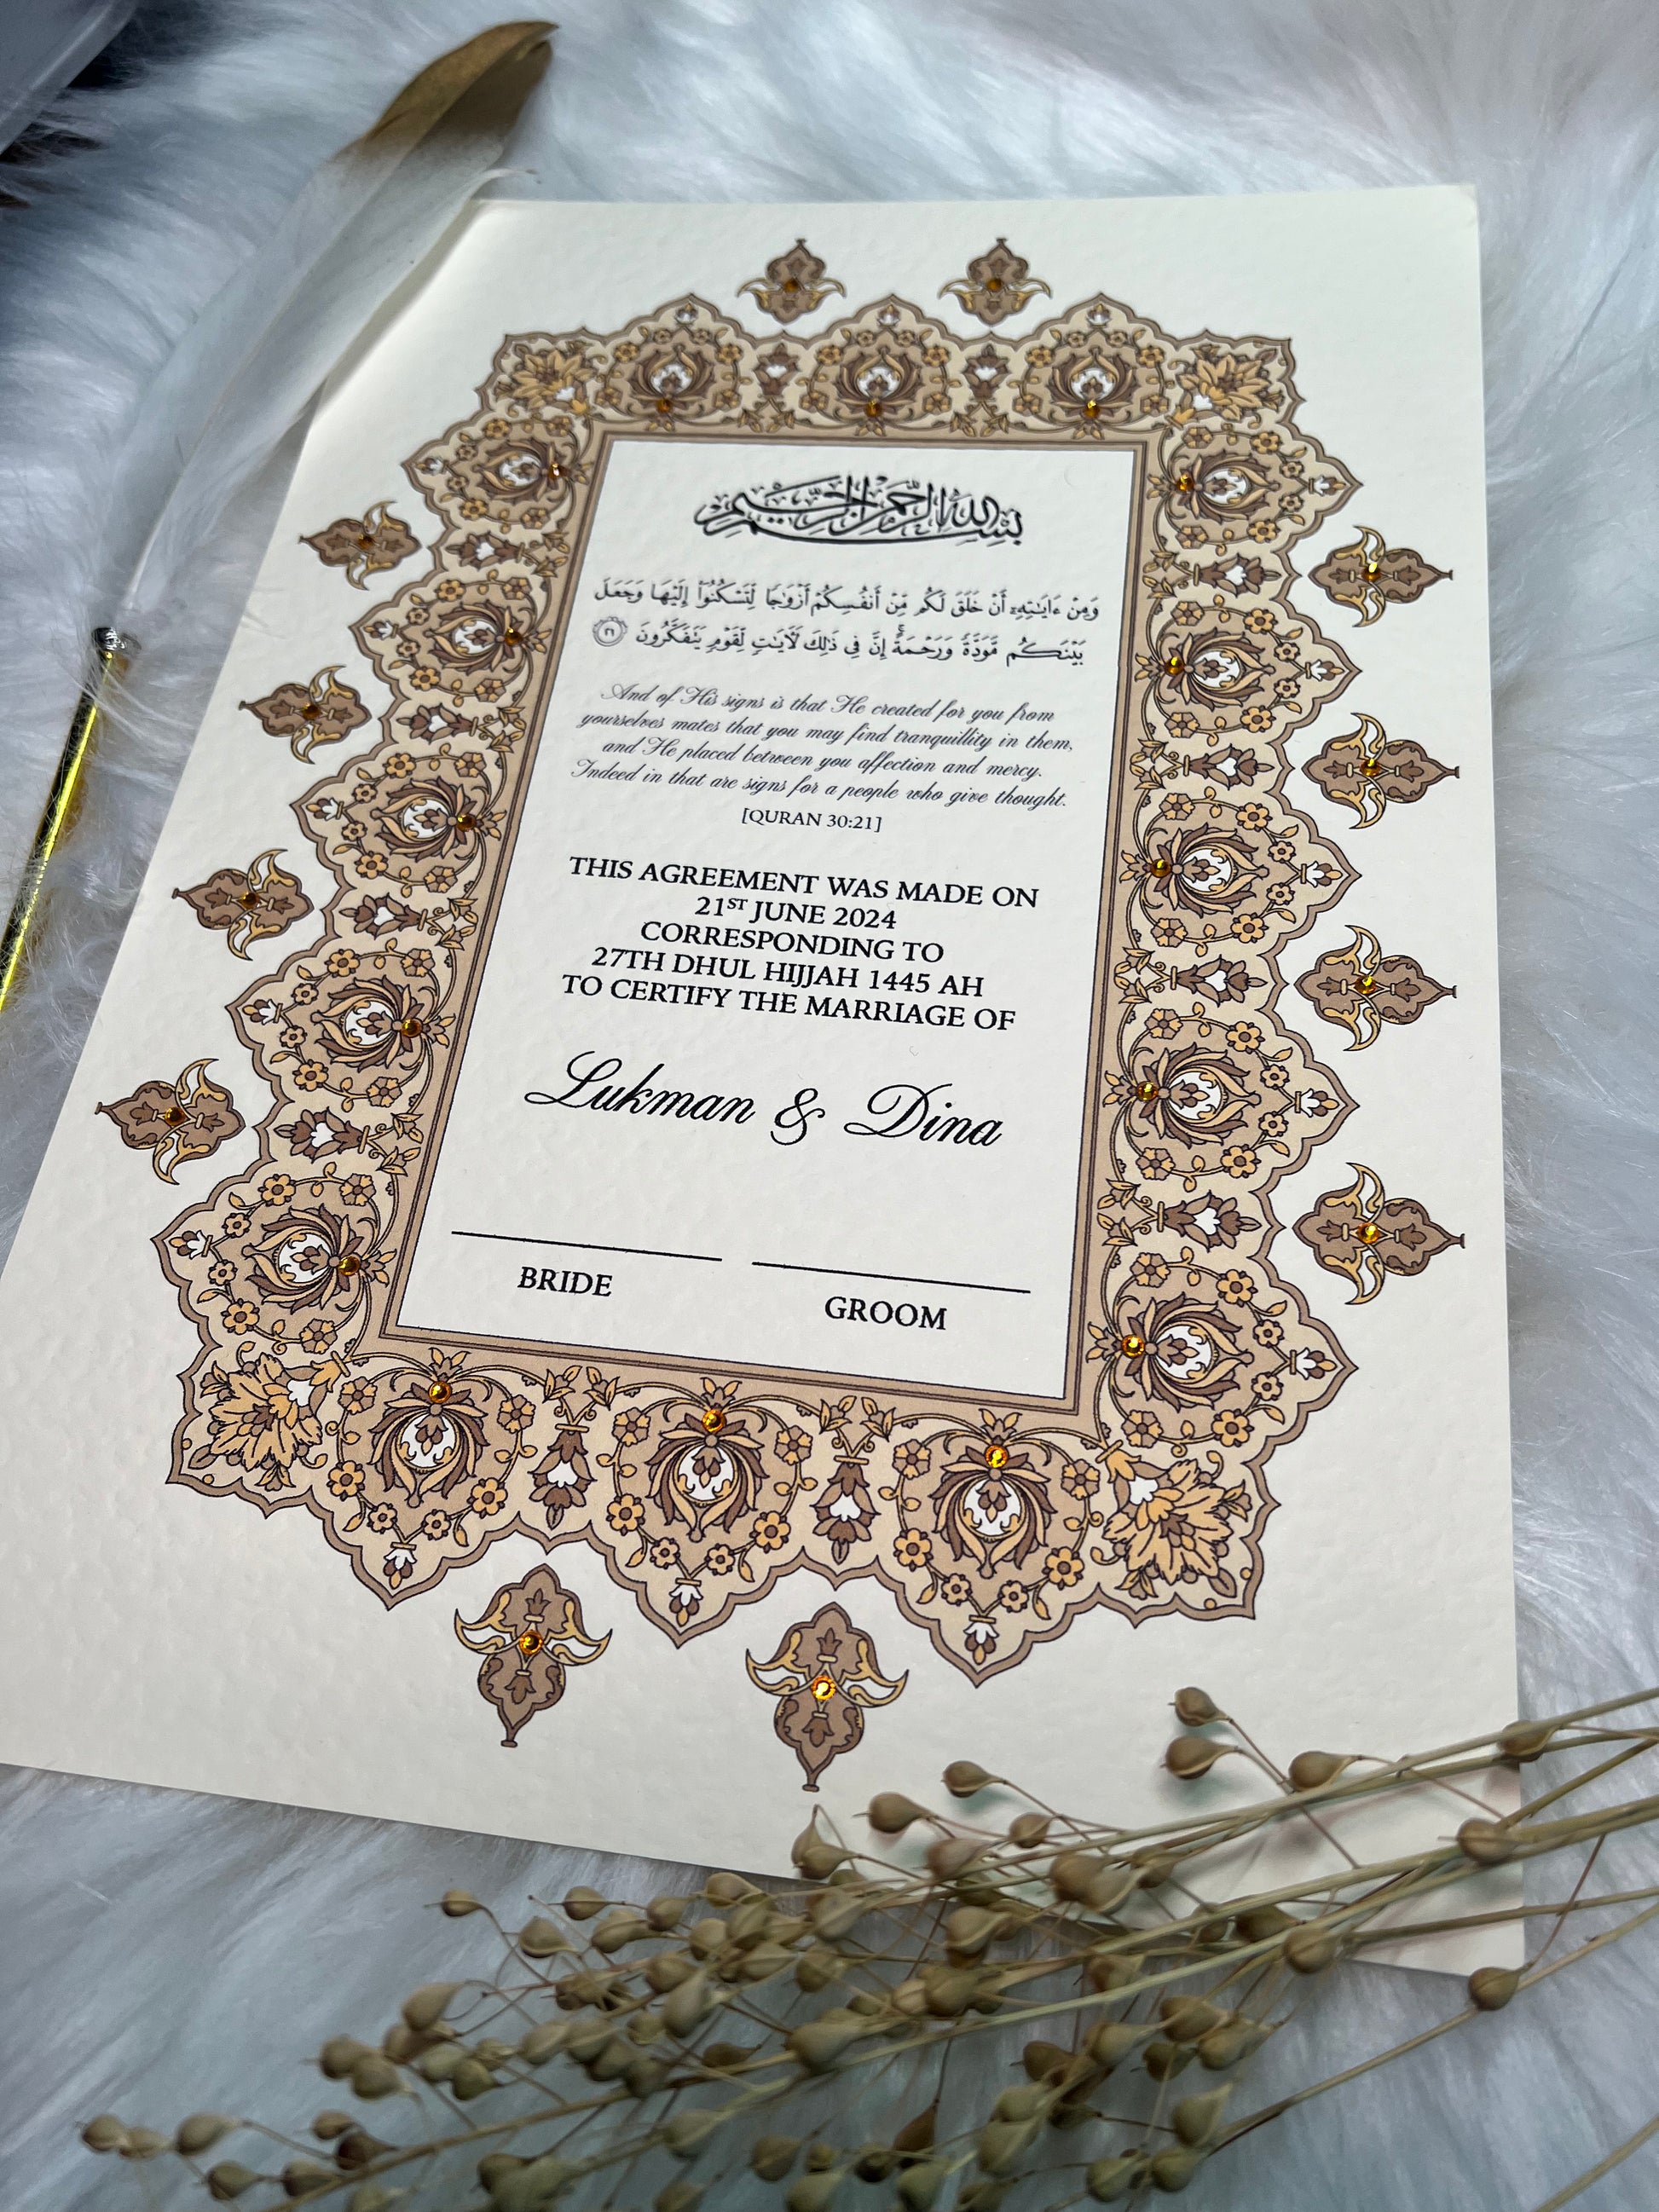 بسم الله الرحمن الرحيم
وَمِنْ ءَايَٰتِهِۦٓ أَنْ خَلَقَ لَكُم مِّنْ أَنفُسِكُمْ أَزْوَٰجًا لِّتَسْكُنُوٓا۟ إِلَيْهَا وَجَعَلَ
بَيْنَكُم مَّوَدَّةً وَرَحْمَةً ۚ إِنَّ فِى ذَٰلِكَ لَءَايَٰتٍ لِّقَوْمٍ يَتَفَكَّرُونَ ٢١
And of His signs is that He created for you from
yourselves mates that you may find tranquillity in them,
and He placed between you affection and mercy.
Indeed in that are signs for a people who give thought.
[QURAN 30:21]
THIS AGREEMENT WAS MADE ON
21ST JUNE 2024
CORRESPONDING TO
27TH DHUL HIJJAH 1445 AH
TO CERTIFY THE MARRIAGE OF
Lukman & Dina
BRIDE GROOM